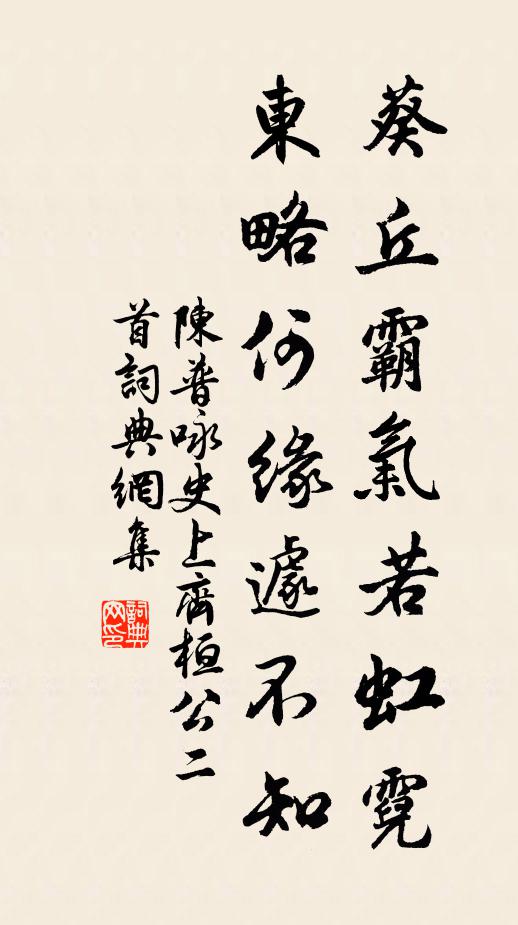 葵丘霸氣若虹霓
東略何緣遽不知
陳普咏史上齊桓公二
首詞典網集
詞典
网印